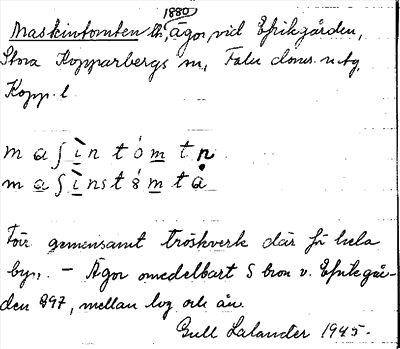 1880
Maskintomten th, ägor, vid Efrikgården,
Stora Kopparbergs sn, Falu doms. n tg,
Kopp. l
m a ʃ ì n t ó m t n
m a ʃ ì n s t ó m t å
För gemensamt tröskverk där för hela
byn. – Ägor omedelbart S bron v. Efrikgår-
den 897, mellan lvg och ån.
Gull Lalander 1945.